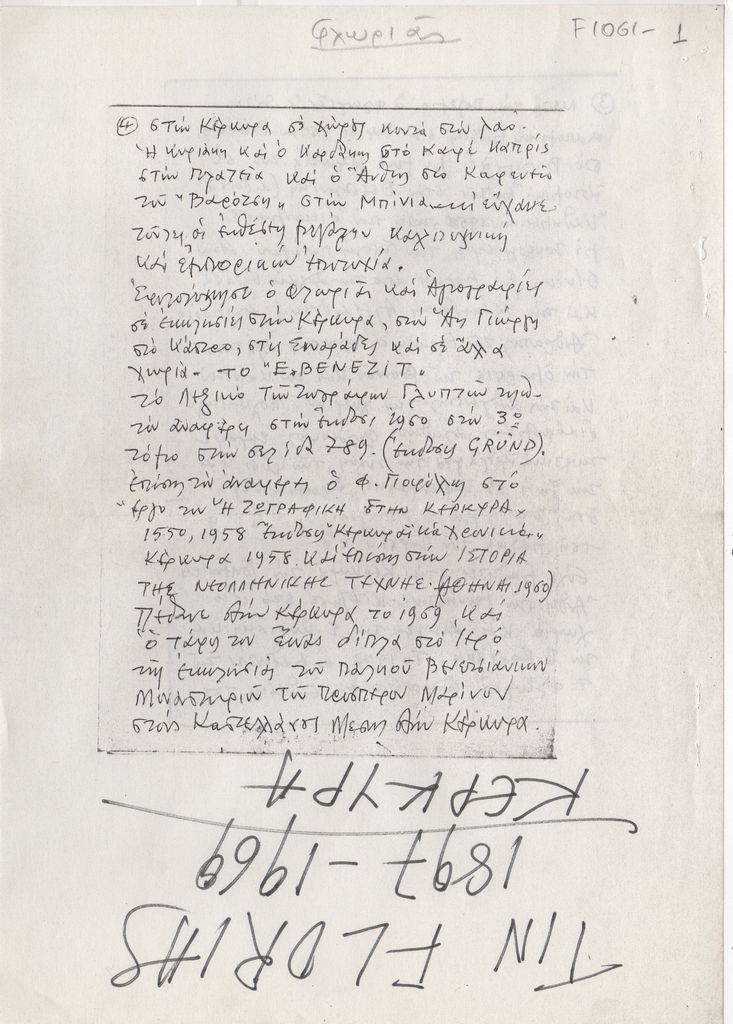 Φλωριάς
F1061- 1
④ στην Κέρκυρα σε χώρους κοντά στον λαό.
Ἡ Κυριάκη και ὁ Καρδάκης στό Καφέ Καπρίς
στην Πλατεία και ὁ Ἄνθης στο Καφενείο
του "Βαρότση„ στην Μπίνια και εἴχανε
τότες οἱ ἐκθέσεις μεγάλην καλλιτεχνική
και ἐμπορικήν ἐπιτυχία.
ὁ Φλωριᾶς και Ἁγιογραφίες
σε ἐκκλησιές στην Κέρκυρα, στον Ἅη Γιώργη
στο Κάστρο, στις Σιναράδες και σε ἄλλα
χωριά - ΤΟ "E. BENEZIT„
τό Λεξικό Των Ζωγράφων Γλυπτών
τον αναφέρει στην Ἔκδοση 1950 στον 3º
τόμο στην σελίδα 789. (Ἔκδοσις GRÜND).
Ἐπίσης τον ἀναφέρει ὁ Φ. στό
ἔργο του "Η ΖΩΓΡΑΦΙΚΗ ΣΤΗΝ ΚΕΡΚΥΡΑ„
1550, 1958 Ἔκδοση "Κερκυραϊκά Χρονικά„
Κέρκυρα 1958. και ἐπίσης στην ΙΣΤΟΡΙΑ
ΤΗΣ ΝΕΟΛΛΗΝΙΚΗΣ ΤΕΧΝΗΣ. (ΑΘΗΝΑΙ 1960)
Πέθανε στην Κέρκυρα το 1969 και
ὁ τάφος του εἶναι δίπλα στο Ιερό
της ἐκκλησιάς του παληού Βενετσιάνικου
Μοναστηριού του Προσπέρου Μαρίνου
στους Καστελλάνους Μέσης στην Κέρκυρα.
ΚΕΡΚΥΡΑ
1897-1969
TIN FLORIAS